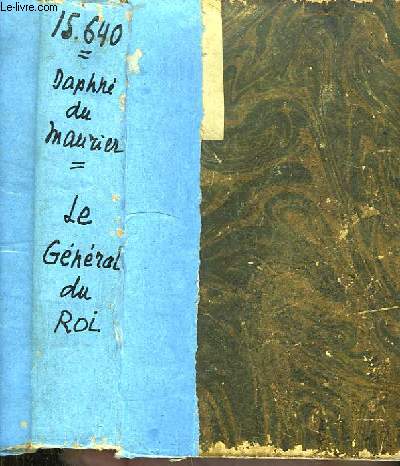 Le-livre.com
15.640
=
Daphné
du
maurier
=
Le
Général
du
Roi